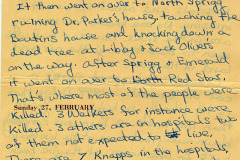 It then went over to North Sprigg
ruining Dr. Parker's house, touching the
Boutin's house and knocking down a
dead tree at Libby & Jack Oliver's
on the way. After Sprigg & Emerald
it went on over to Red Star,
That's where most of the people were
Sunday 27, FEBRUARY
Killed. 3 Walkers for instance were
Killed. 3 others are in hospitals two
of them not expected to live.
There are 7 Knapps in the hospitals,